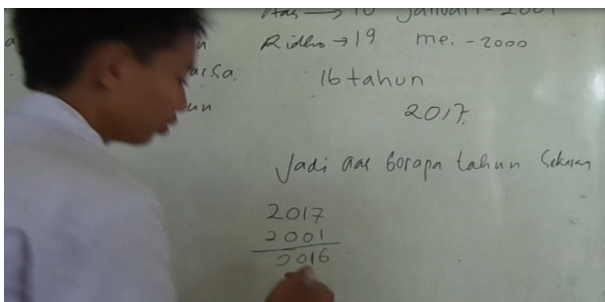 Aas → 10 Januari - 2001
Ridho → 19 mei - 2000
16 tahun
2017
Jadi aas berapa tahun Sekaran
2017
2001
0016